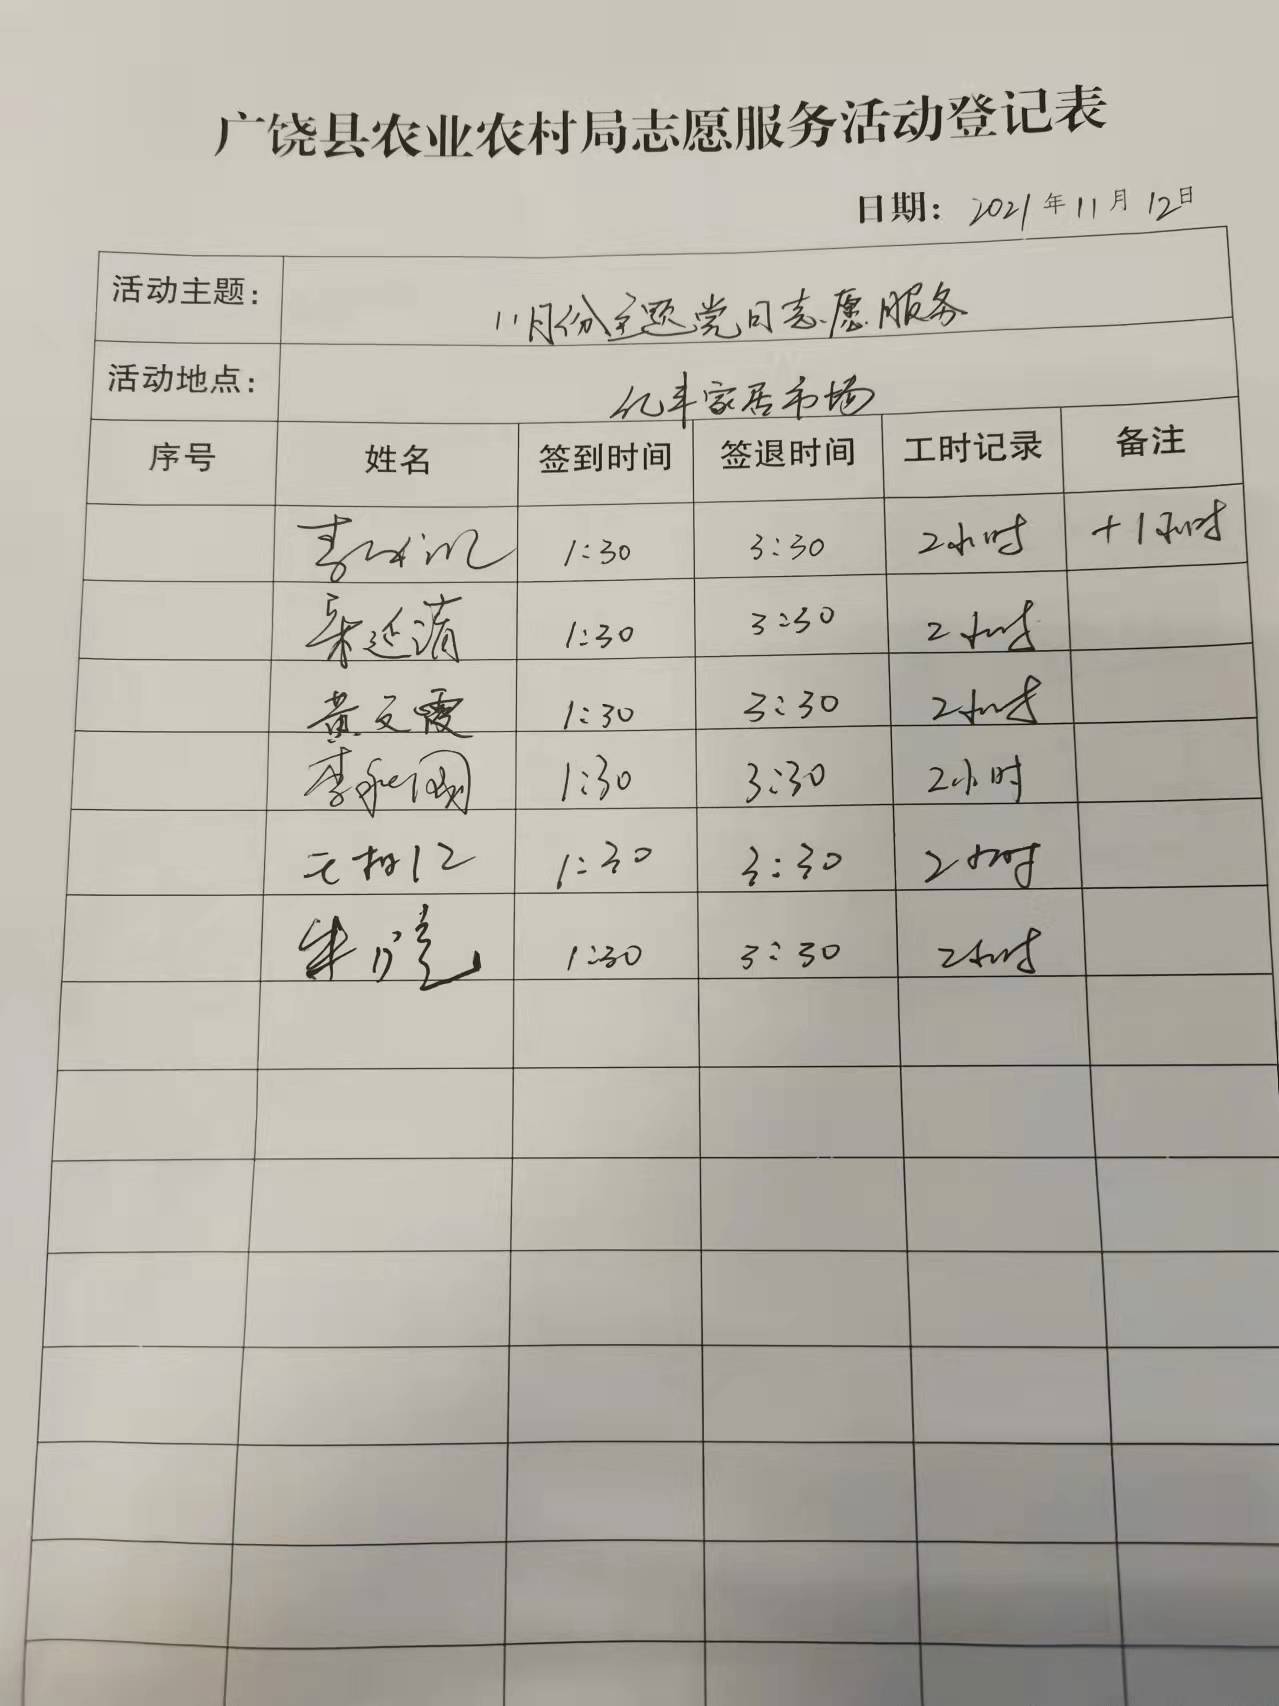 广饶县农业农村局志愿服务活动登记表
日期: 2021年11月12日
活动主题: 11月份主题党日志愿服务
活动地点: 亿丰家居市场
序号 姓名 签到时间 签退时间 工时记录 备注
1:30 3:30 2小时 +1小时
1:30 3:30 2小时
黄文霞 1:30 3:30 2小时
1:30 3:30 2小时
1:30 3:30 2小时
1:30 3:30 2小时